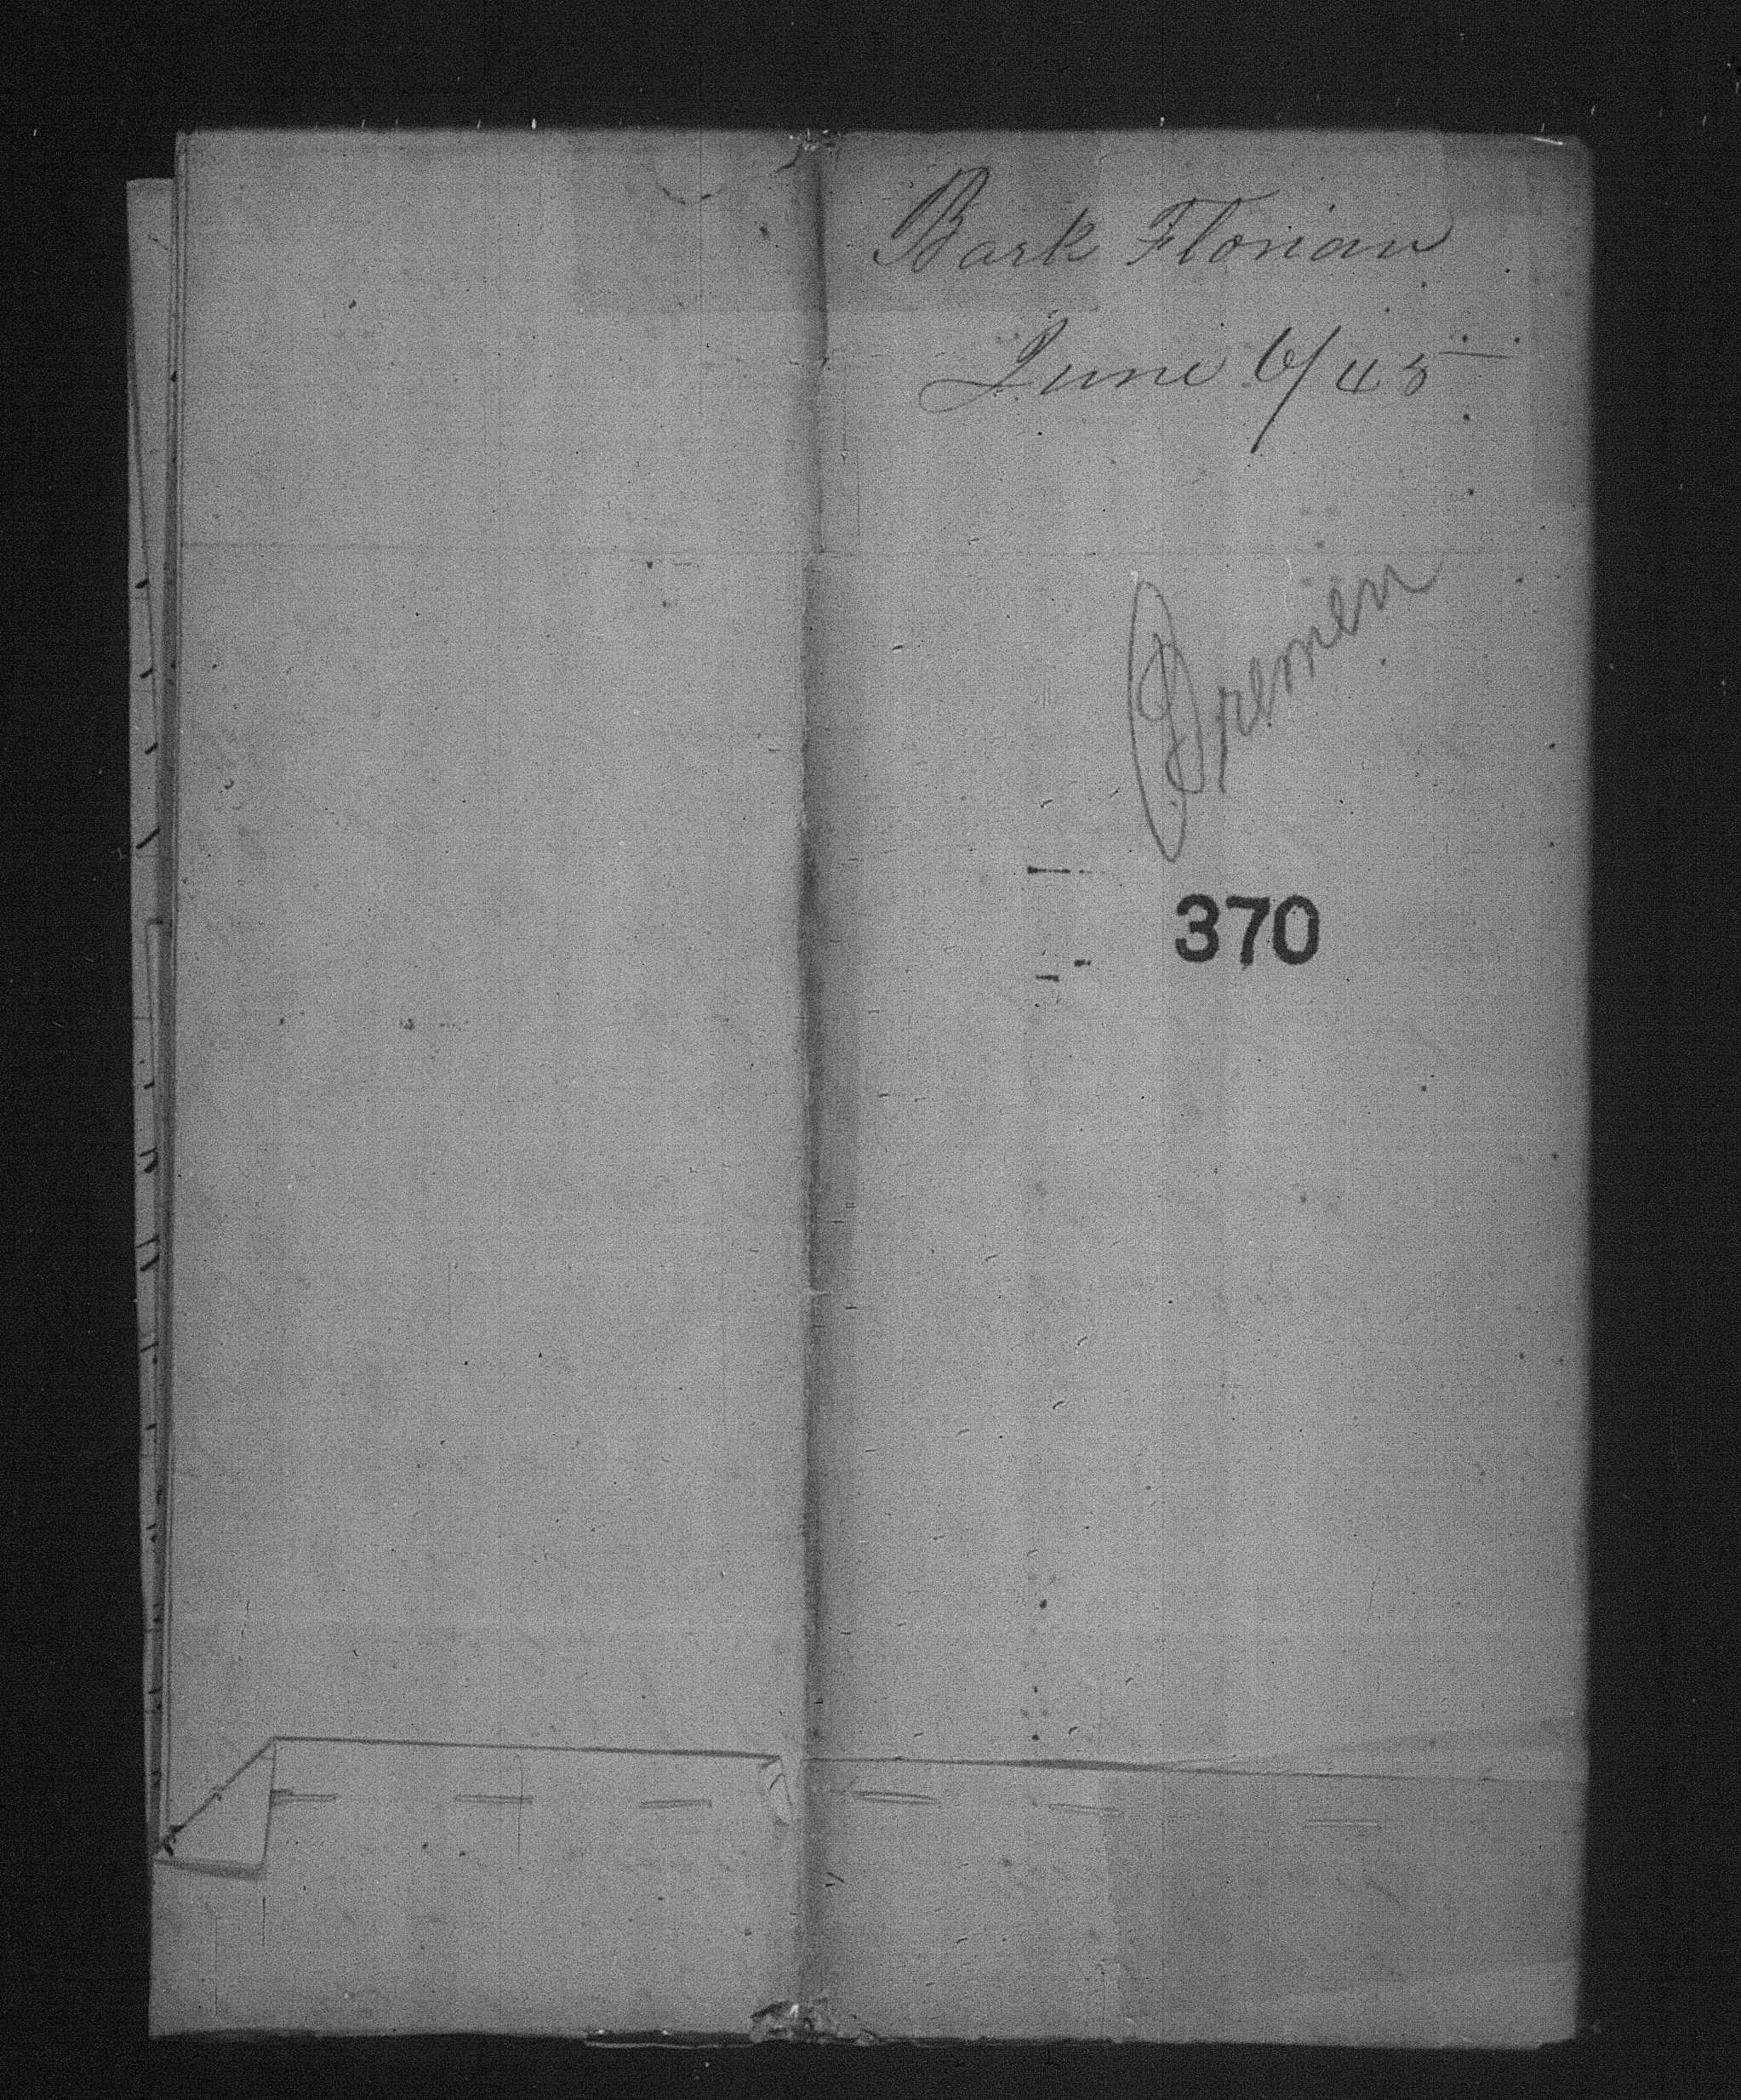 Bark Florian
June 6/45
Bremen
370